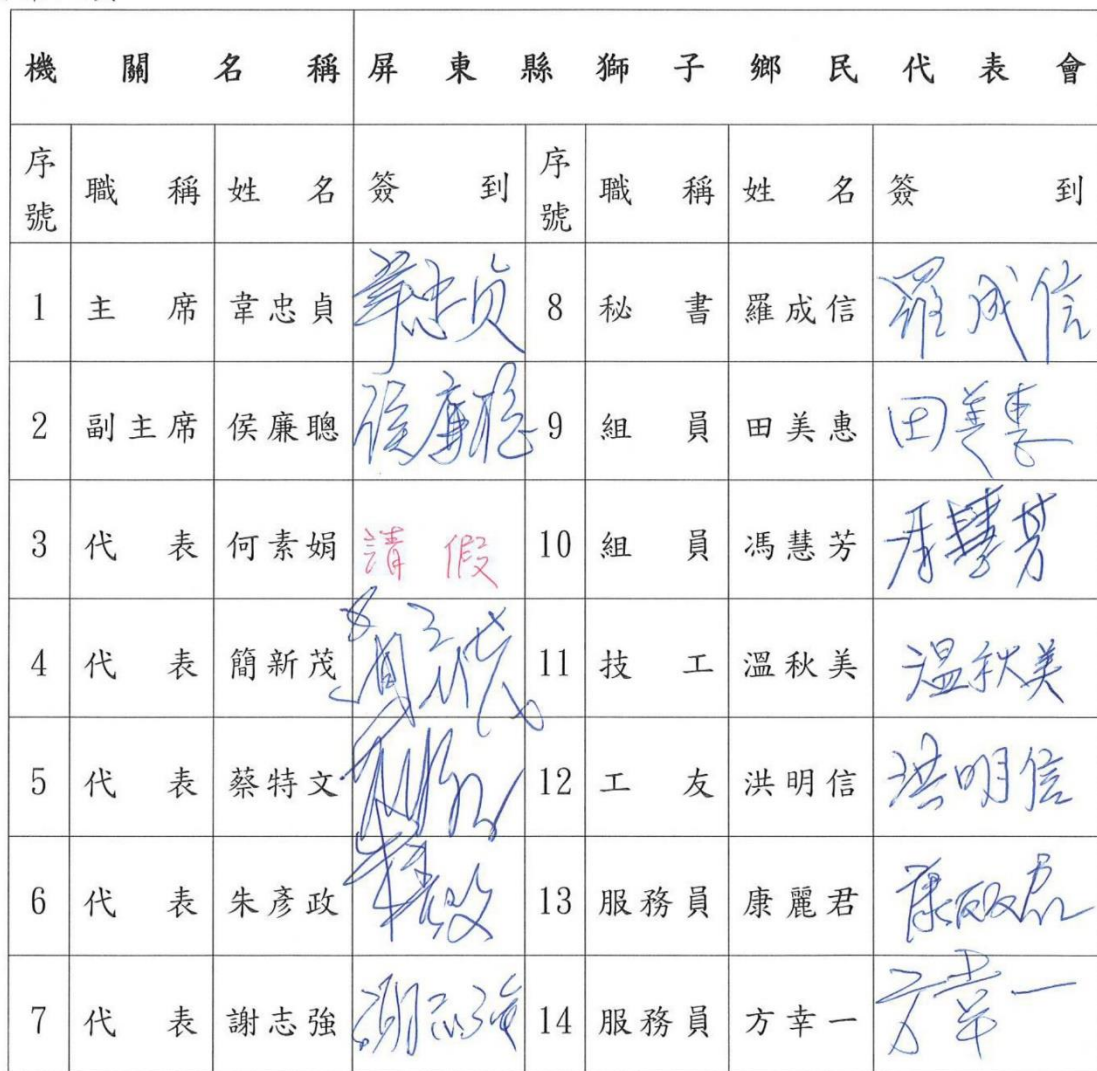 機關名稱 屏東縣獅子鄉民代表會
序號 職稱 姓名 簽到 序號 職稱 姓名 簽到
1 主席 韋忠貞 韋忠貞 8 秘書 羅成信 羅成信
2 副主席 侯廉聰 侯廉聰 9 組員 田美惠 田美惠
3 代表 何素娟 請假 10 組員 馮慧芳 馮慧芳
4 代表 簡新茂 11 技工 溫秋美 溫秋美
5 代表 蔡特文 12 工友 洪明信 洪明信
6 代表 朱彥政 13 服務員 康麗君 康麗君
7 代表 謝志強 謝志強 14 服務員 方幸一 方幸一